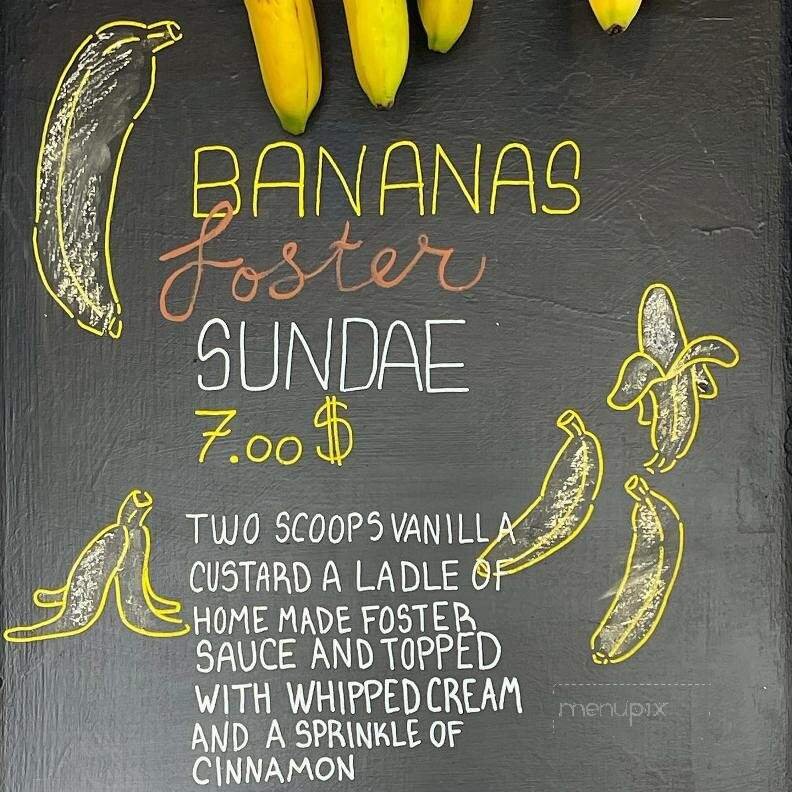 BANANAS
foster
SUNDAE
7.00$
TWO SCOOPS VANILLA
CUSTARD A LADLE OF
HOME MADE FOSTER
SAUCE AND TOPPED
WITH WHIPPED CREAM
AND A SPRINKLE OF
CINNAMON
menupix